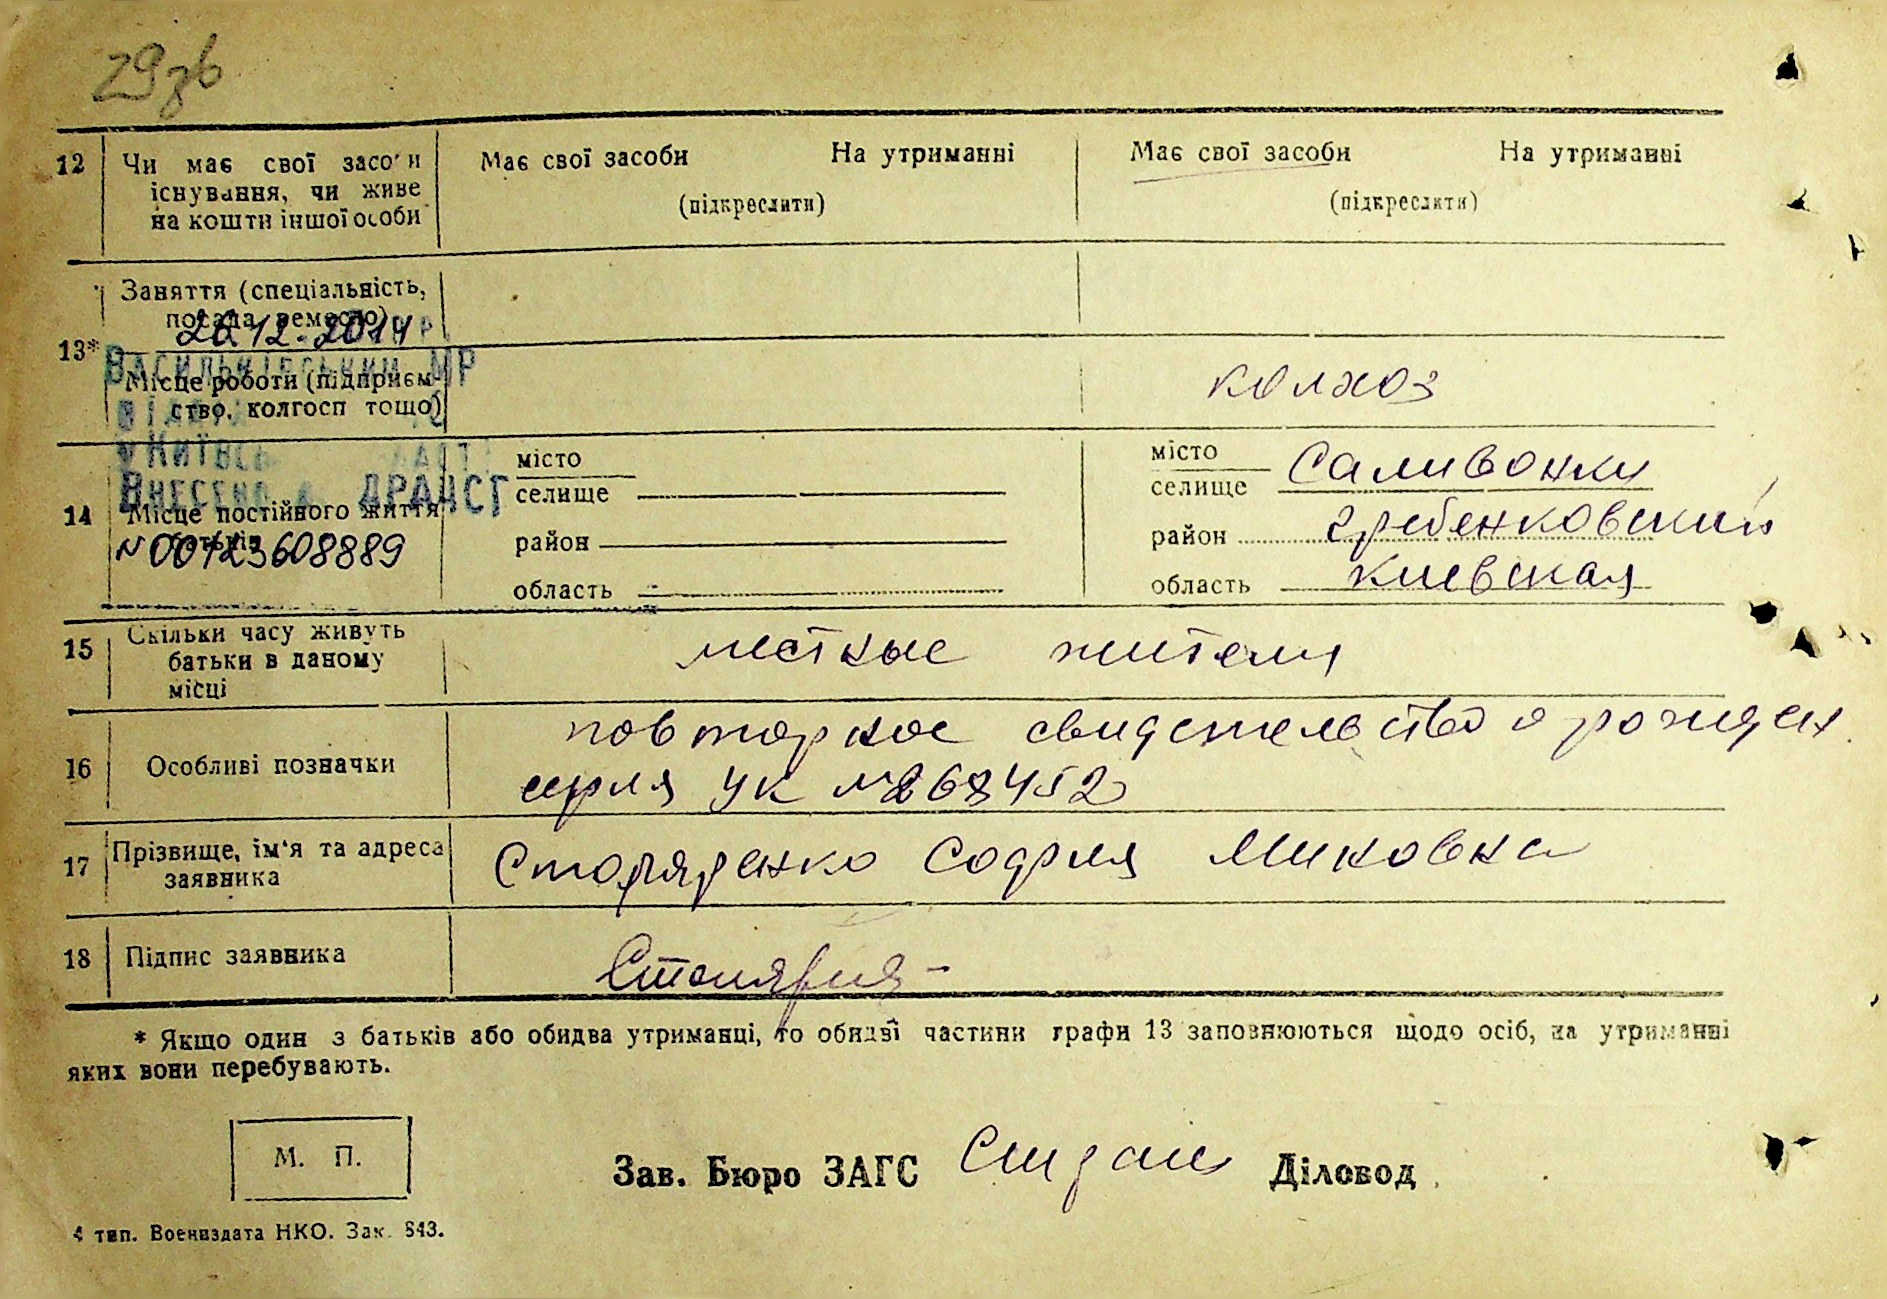 29зв
12 Чи має свої засоби Має свої засоби На утриманні Має свої засоби На утриманні
існування, чи живе (підкреслити) (підкреслити)
на кошти іншої особи
Заняття (спеціальність,
посада, ремесло)
26.12.2014
13*
Васильківським МР
Місце роботи (підприєм- колхоз
ство, колгосп тощо)
у Київс
Внесено до ДРАЦСГ
14 Місце постійного життя
батьків
№ 00123608889
місто
селище
район
область
місто
селище Саливонки
район Гребенковский
область Киевская
15 Скільки часу живуть местные жители
батьки в даному
місці
16 Особливі позначки повторное свидетельство о рожден
серия УК №
17 Прізвище, ім'я та адреса Столяренко София
заявника
18 Підпис заявника
* Якщо один з батьків або обидва утриманці, то обидві частини графи 13 заповнюються щодо осіб, на утриманні
яких вони перебувають.
М. П.
Зав. Бюро ЗАГС Діловод
4 тип. Воениздата НКО. Зак. 843.